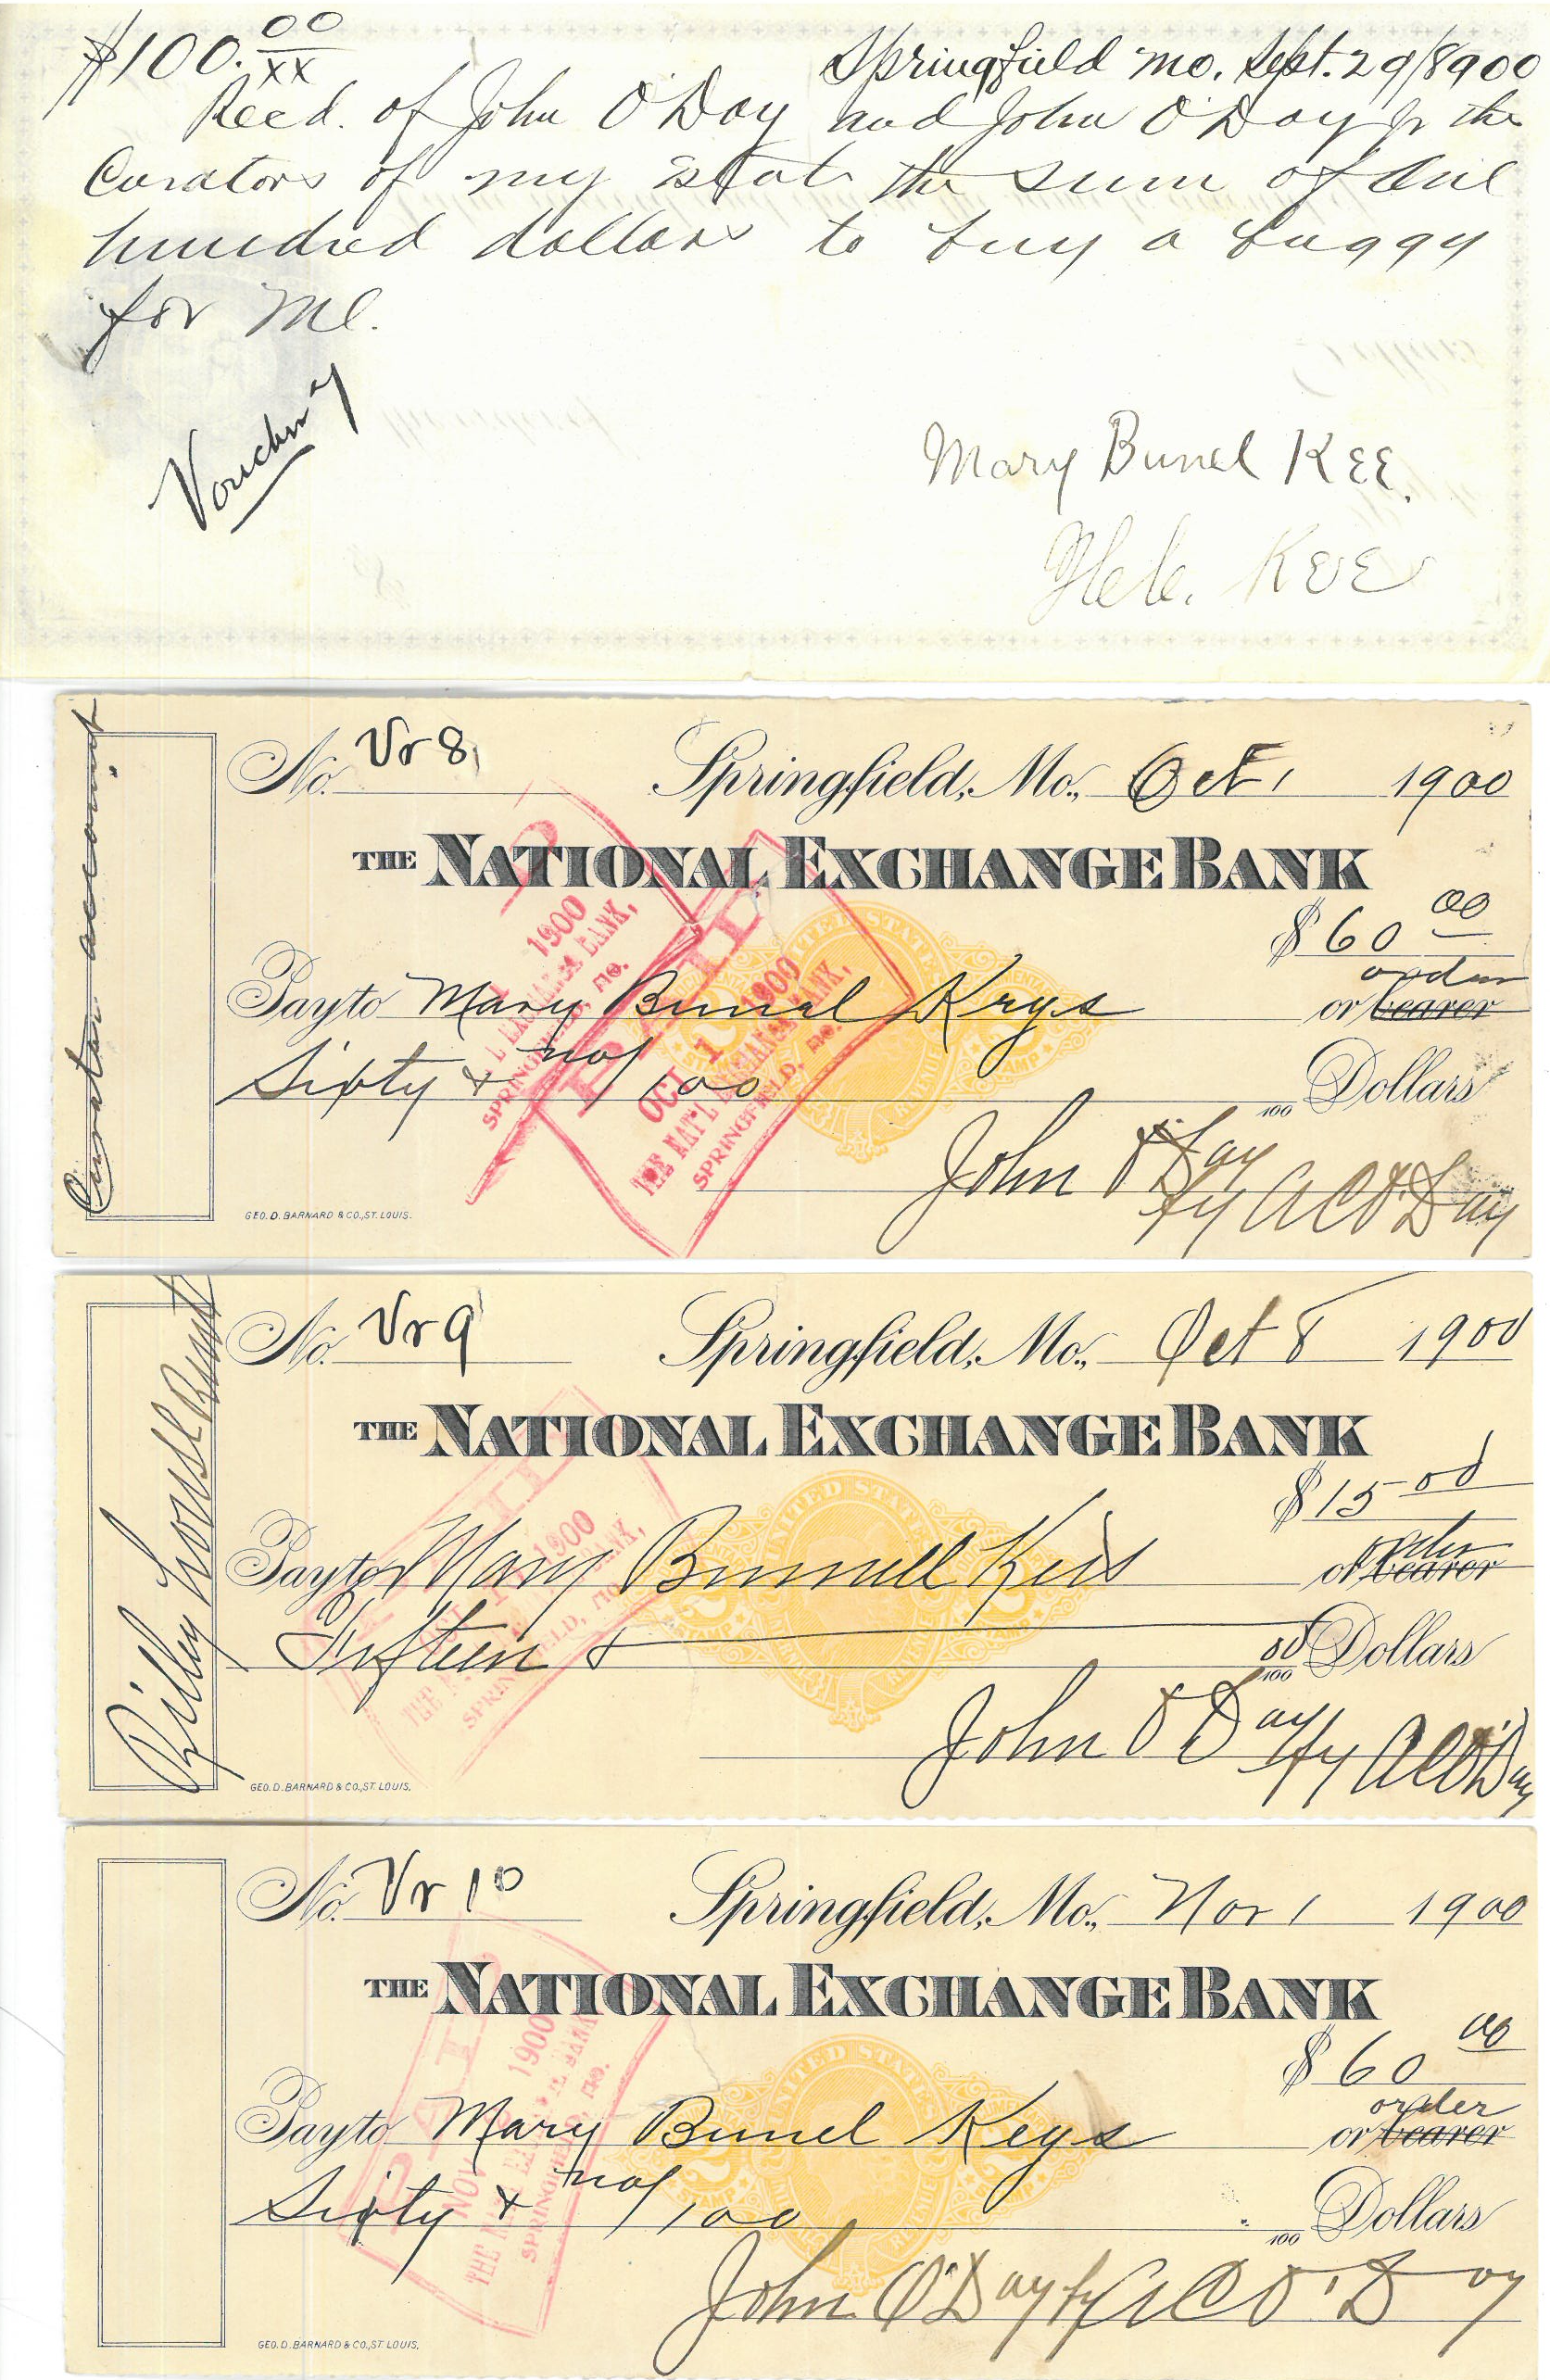 $100.00/xx Springfield Mo. Sept. 29/8900
Recd. of John O'Day and John O'Day Jr the
Curators of my Estate the sum of One
hundred dollars to buy a buggy
for Me.
Voucher 7
Mary Bunel KEE.
KEE
Curator account.
No. Vr 8 Springfield, Mo., Oct 1 1900
THE NATIONAL EXCHANGE BANK
$ 60 00
order
Pay to Mary Bunel Keys or bearer
Sixty & no/100 /100 Dollars
John O'Day
by A C O'Day
GEO. D. BARNARD & CO., ST. LOUIS.
PAID
OCT 1 1900
THE NAT'L EXCHANGE BANK,
SPRINGFIELD, MO.
Rilley house Rent
No. Vr 9 Springfield, Mo., Oct 8 1900
THE NATIONAL EXCHANGE BANK
$ 15 00
order
Pay to Mary Bunnell Keis or bearer
Fifteen & 00/100 Dollars
John O'Day by A C O'Day
GEO. D. BARNARD & CO., ST. LOUIS.
No. Vr 10 Springfield, Mo., Nov 1 1900
THE NATIONAL EXCHANGE BANK
$ 60 00
order
Pay to Mary Bunel Keys or bearer
Sixty & no/100 /100 Dollars
John O'Day by A C O'Day
GEO. D. BARNARD & CO., ST. LOUIS.